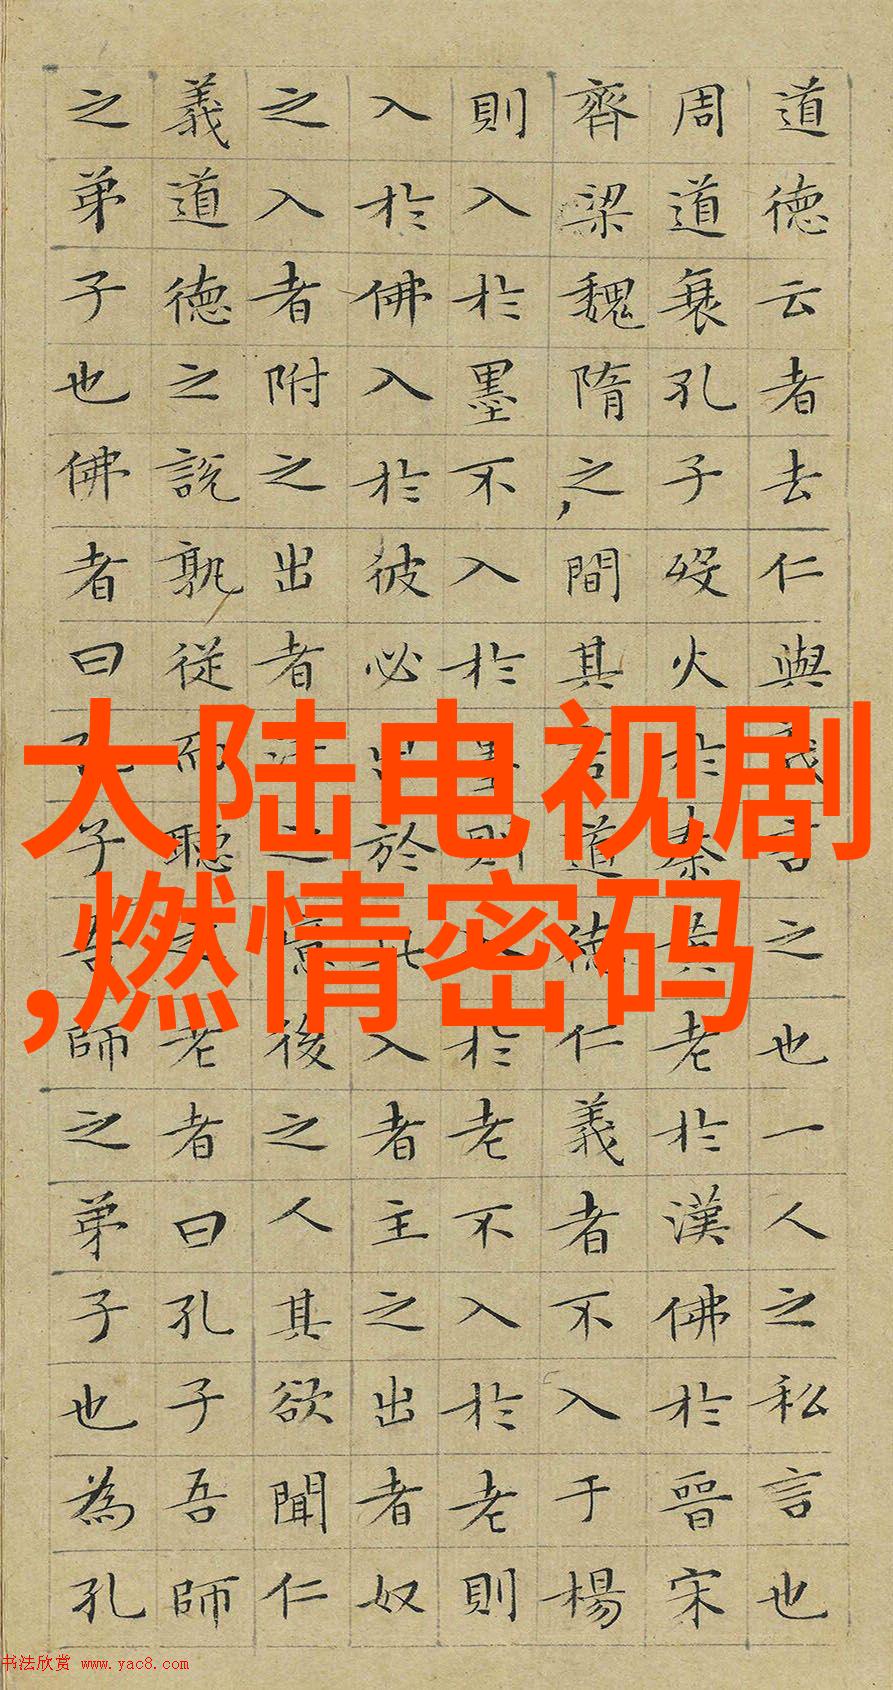 道德云者去仁與義言之也一人之私言也
周道衰孔子歿火於秦黃老於漢佛於晉宋
齊梁魏隋之間其言道德仁義者不入于楊
則入於墨不入於墨則入於老不入於老則
入於佛入於彼必出於此入者主之出者奴
之入者附之出者之後之人其欲聞仁
義道德之說孰從而聽之老者曰孔子吾師
之弟子也佛者曰孔子吾師之弟子也為孔
大陆电视剧
,燃情密码
书法欣赏 www.yac8.com